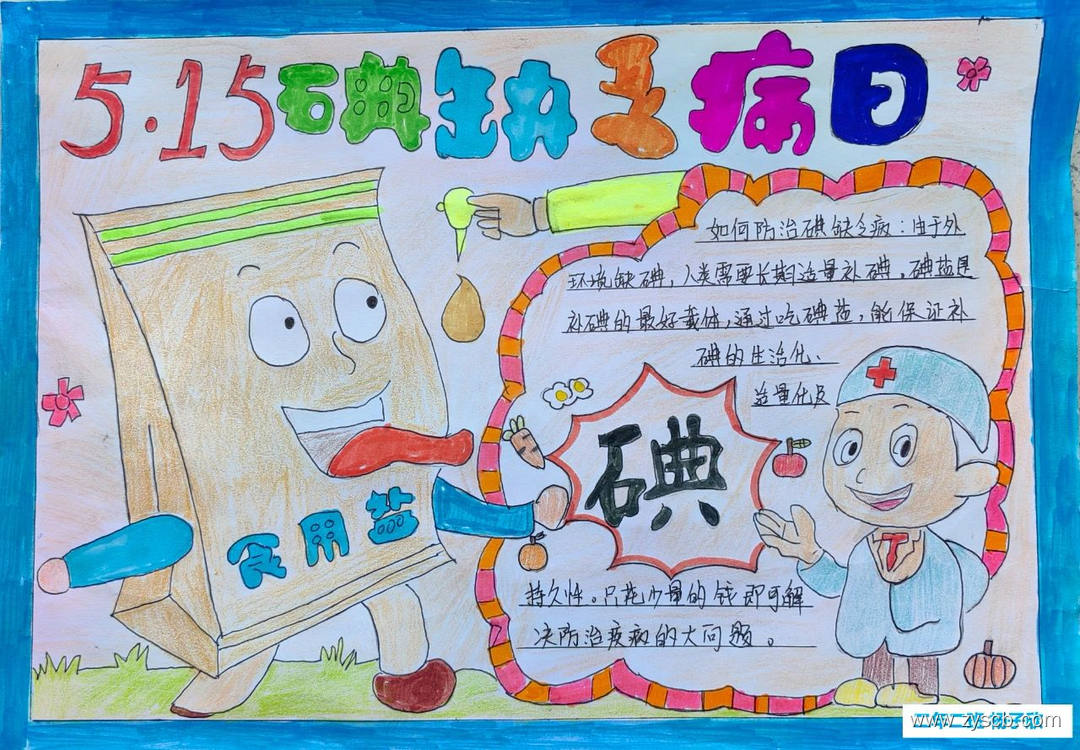 5.15碘缺乏病日
如何防治碘缺乏病：由于外
环境缺碘，人类需要长期适量补碘。碘盐是
补碘的最好载体，通过吃碘盐，能保证补
碘的生活化、
适量化及
碘
食用盐
持久性。只花少量的钱即可解
决防治疾病的大问题。
www.zyscb.com